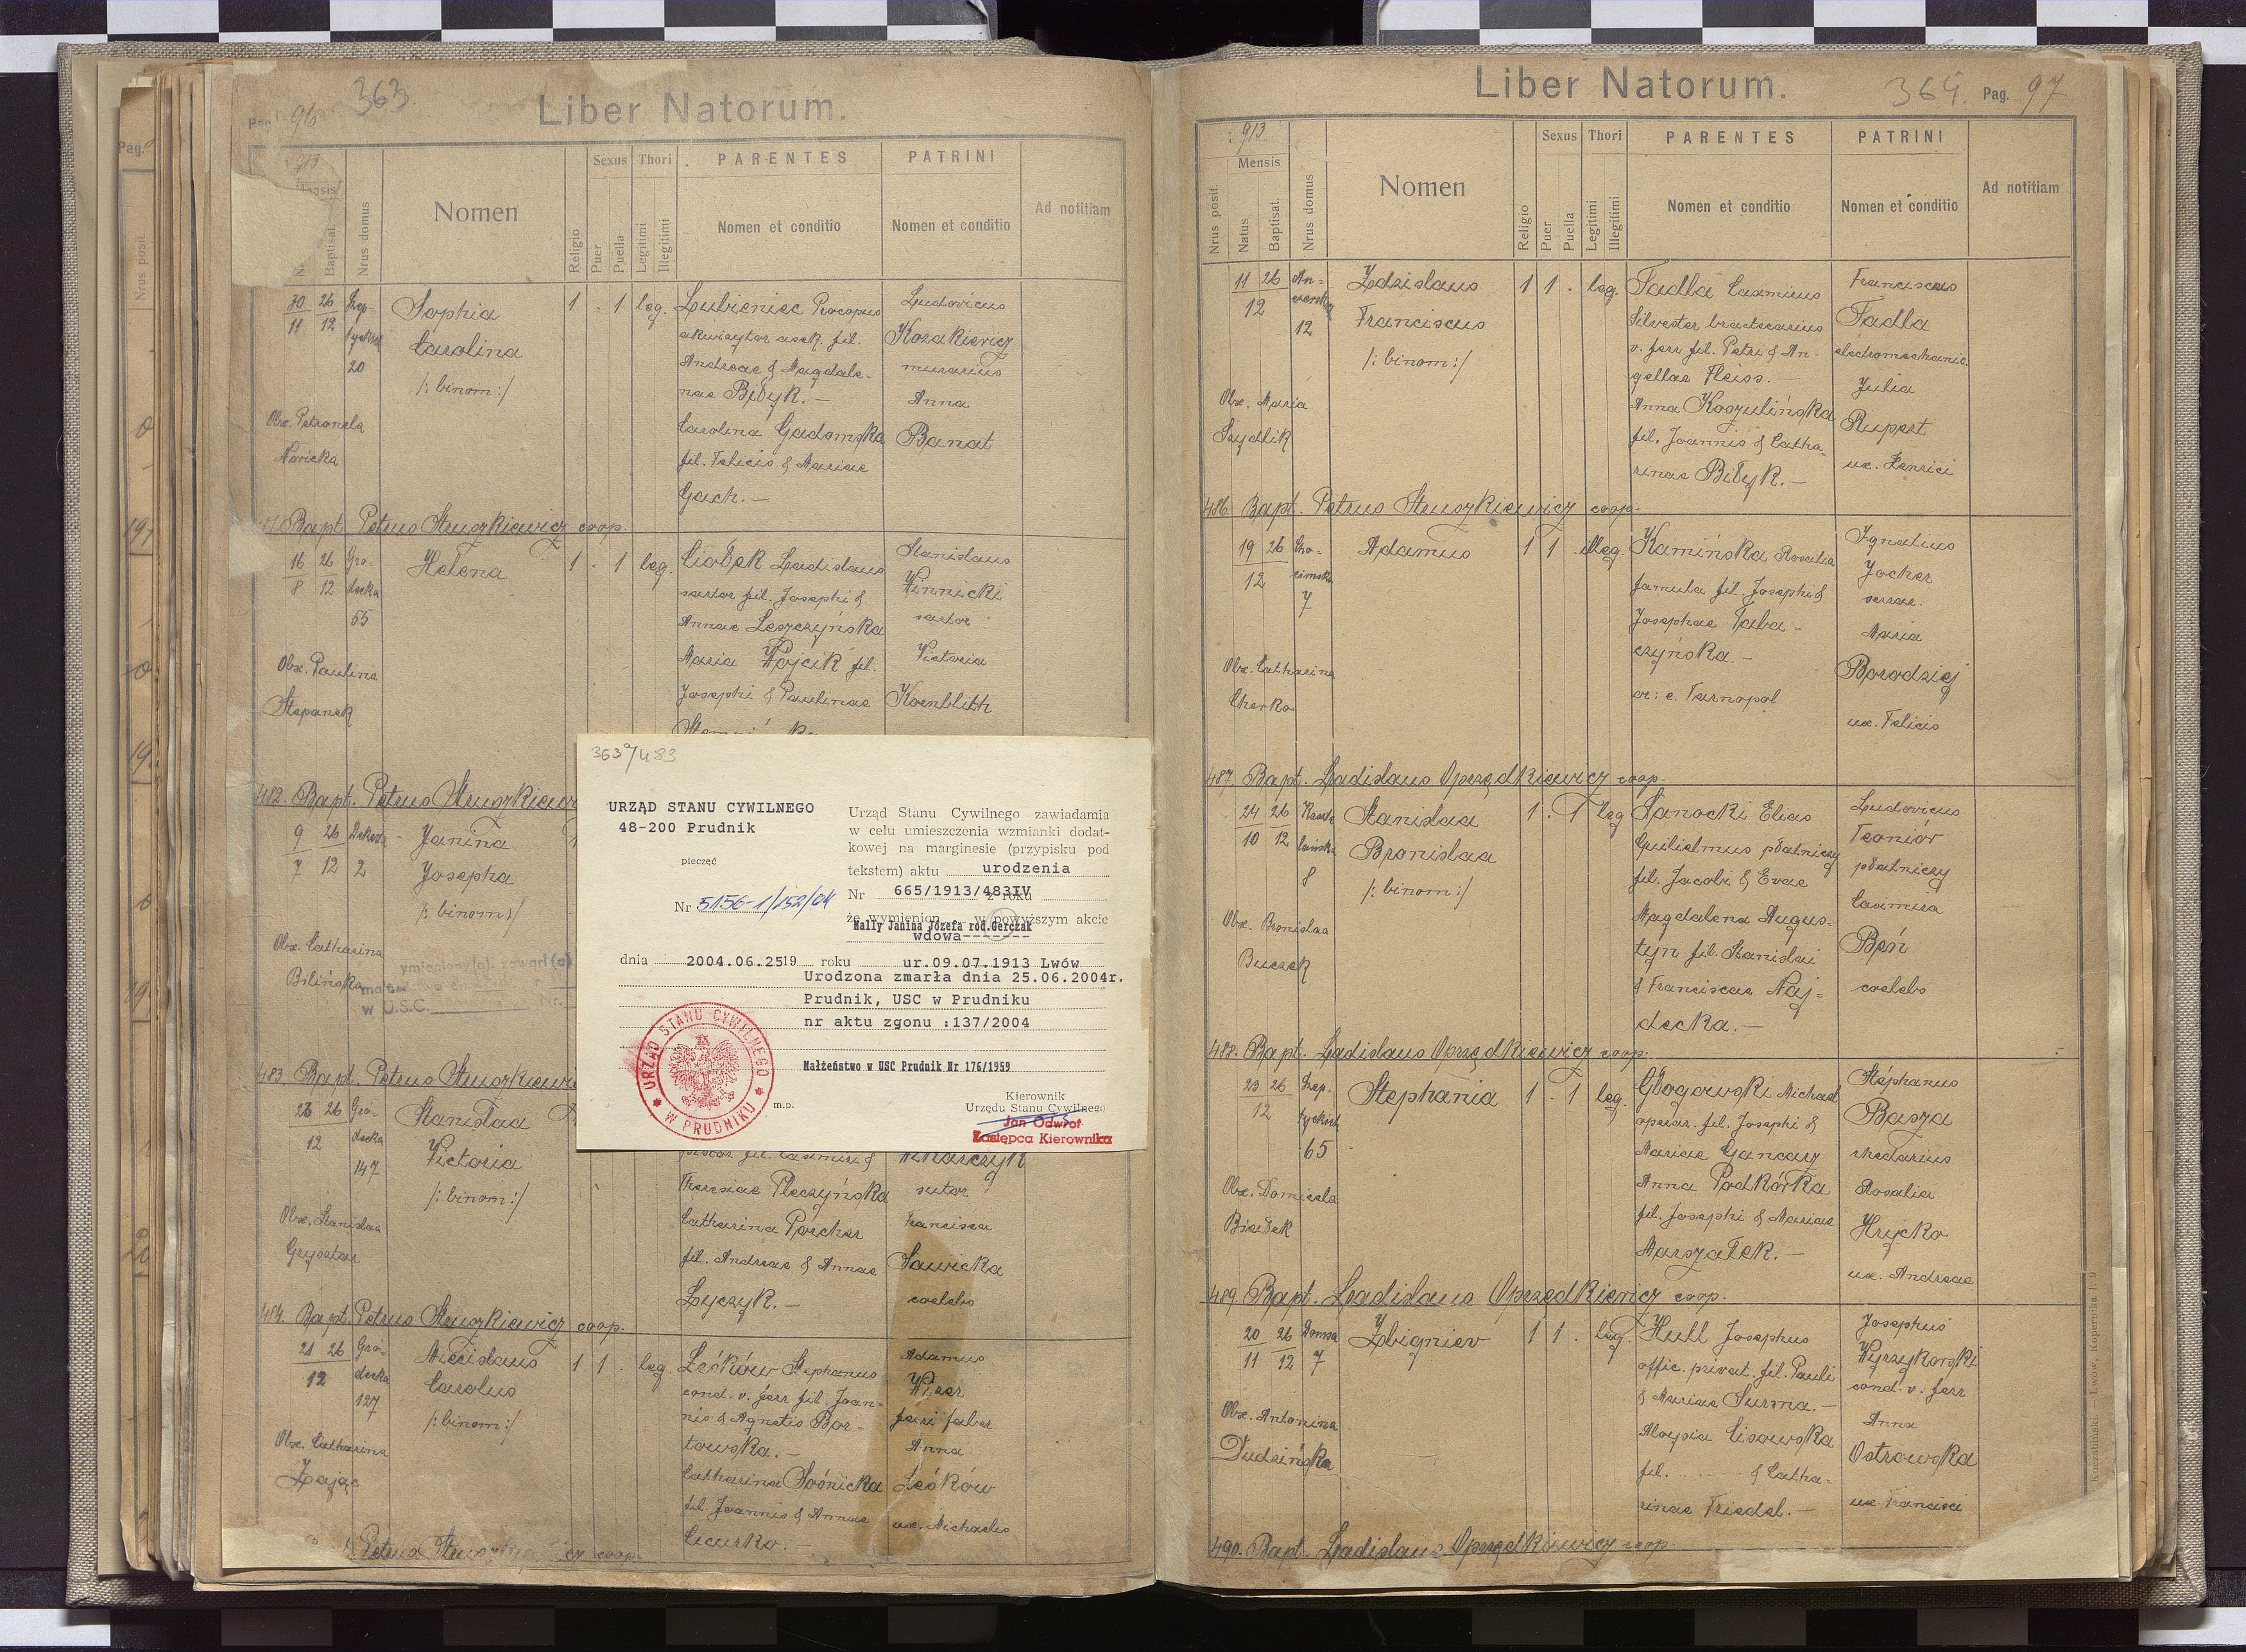 Pag. 96
363.
Liber Natorum.
913
Mensis
Baptisat.
Nrus domus
Nomen
Religio
Sexus
Puer
Puella
Thori
Legitimi
Illegitimi
PARENTES
Nomen et conditio
PATRINI
Nomen et conditio
Ad notitiam
30 26
11 12
20
Sophia
Carolina
/: binom :/
1 . 1 leg.
Lubieniec Procopus
akwizytor asek. fil.
Andreae & Magdale-
nae Bibyk. -
Carolina Gadomska
fil. Felicis & Mariae
Gach. -
Ludovicus
Kozakiewicz
murarius
Anna
Banat
Obx. Petronela
Naricka
Bapt. Petrus Struszkiewicz coop.
16 26
8 12
Gro-
decka
55
Helena
1 . 1 leg.
Ciołek Ladislaus
sartor fil. Josephi &
Annae Leszczyńska
Maria Wójcik fil.
Josephi & Paulinae
Stanislaus
Winnicki
sartor
Victoria
Kornblith
Obx. Paulina
Stepanek
482. Bapt. Petrus Struszkiewi
9 26
7 12
2
Janina
Josepha
/: binom :/
Obx. Catharina
Bilińska
ymieniony(a) zawarł(a)
w U.S.C.
Nr.
483. Bapt. Petrus Struszkiewi
23 26
12
Gró-
decka
147
Stanisłaa
Victoria
/: binom :/
Obx. Stanislaa
Grysztar
fil. Casimiri &
Theresiae Pleczyńska
Catharina Porcher
fil. Andreae & Annae
Łyczyk. -
sutor
Francisca
Sawicka
coelebs
484. Bapt. Petrus Struszkiewicz coop.
21 26
12
Gró-
decka
127
Miecislaus
Carolus
/: binom :/
1 1 . leg.
Leśków Stephanus
cond. v. ferr fil. Joan-
nis & Agnetis Bor-
towska. -
Catharina Sośnicka
fil. Joannis & Annae
Adamus
ferri faber
Anna
Leśków
ux. Michaelis
Obx. Catharina
Zając
Petrus coop.
363a/483
URZĄD STANU CYWILNEGO
48-200 Prudnik
pieczęć
Nr 5156-1/152/04
Urząd Stanu Cywilnego zawiadamia
w celu umieszczenia wzmianki dodat-
kowej na marginesie (przypisku pod
tekstem) aktu urodzenia
Nr 665/1913/483IV z roku
że wymienion w powyższym akcie
Mally Janina Józefa rod.Gerczak
wdowa-------
dnia 2004.06.25 19 roku ur.09.07.1913 Lwów
Urodzona zmarła dnia 25.06.2004r.
Prudnik, USC w Prudniku
nr aktu zgonu :137/2004
Małżeństwo w USC Prudnik Nr 176/1959
URZĄD STANU CYWILNEGO * W PRUDNIKU *
m.p.
Kierownik
Urzędu Stanu Cywilnego
Jan Odwrot
Zastępca Kierownika
Liber Natorum.
364. Pag. 97
913
Mensis
Nrus posit.
Natus
Baptisat.
Nrus domus
Nomen
Religio
Sexus
Puer
Puella
Thori
Legitimi
Illegitimi
PARENTES
Nomen et conditio
PATRINI
Nomen et conditio
Ad notitiam
11 26
12
12
Zdzislaus
Franciscus
/: binom :/
1 1 . leg.
Tadla Casimirus
Silvester bractearius
v. ferr fil. Petri & An-
gellae Fleiss. -
Anna Koszulińska
fil. Joannis & Catha-
rinae Bibyk. -
Franciscus
Tadla
electromechanic.
Julia
Ruppert
ux. Henrici
Obx. Maria
Szydlik
486. Bapt. Petrus Struszkiewicz coop.
19 26
12
7
Adamus
1 1 . illeg.
Kamińska Rosalia
famula fil. Josephi &
Josephae Taba-
czyńska. -
or: e. Tarnopol
Ignatius
Jocher
serrar.
Maria
Borodziej
ux. Felicis
Obx. Catharina
Cherko
487. Bapt. Ladislaus Oprzędkiewicz coop.
24 26
10 12
8
Stanislaa
Bronislaa
/: binom :/
1 . 1 leg
Sanocki Elias
Guilielmus płatniczy
fil. Jacobi & Evae
Magdalena Augus-
tyn fil. Stanislai
& Franciscae Naj-
decka. -
Ludovicus
Teoniór
płatniczy
Casimira
Boń
coelebs
Obx. Bronislaa
Buczek
488. Bapt. Ladislaus Oprzędkiewicz coop.
23 26
12
Szep-
tyckich
65
Stephania
1 . 1 leg.
Głogowski Michael
operar. fil. Josephi &
Mariae Gancarz
Anna Podkórka
fil. Josephi & Mariae
Marszałek. -
Stephanus
Basza
rhedarius
Rosalia
Hrycko
ux. Andreae
Obx. Domicela
Białek
489. Bapt. Ladislaus Oprzędkiewicz coop.
20 26
11 12
7
Zbigniev
1 1 . leg.
Hull Josephus
offic. privat. fil. Pauli
& Mariae Surma. -
Aloysia Lisowska
fil. ..... & Catha-
rinae Friedel. -
Josephus
Wyrzykowski
cond. v. ferr
Anna
Ostrowska
ux. Francisci
Obx. Antonina
Dudzińska
490. Bapt. Ladislaus Oprzędkiewicz coop